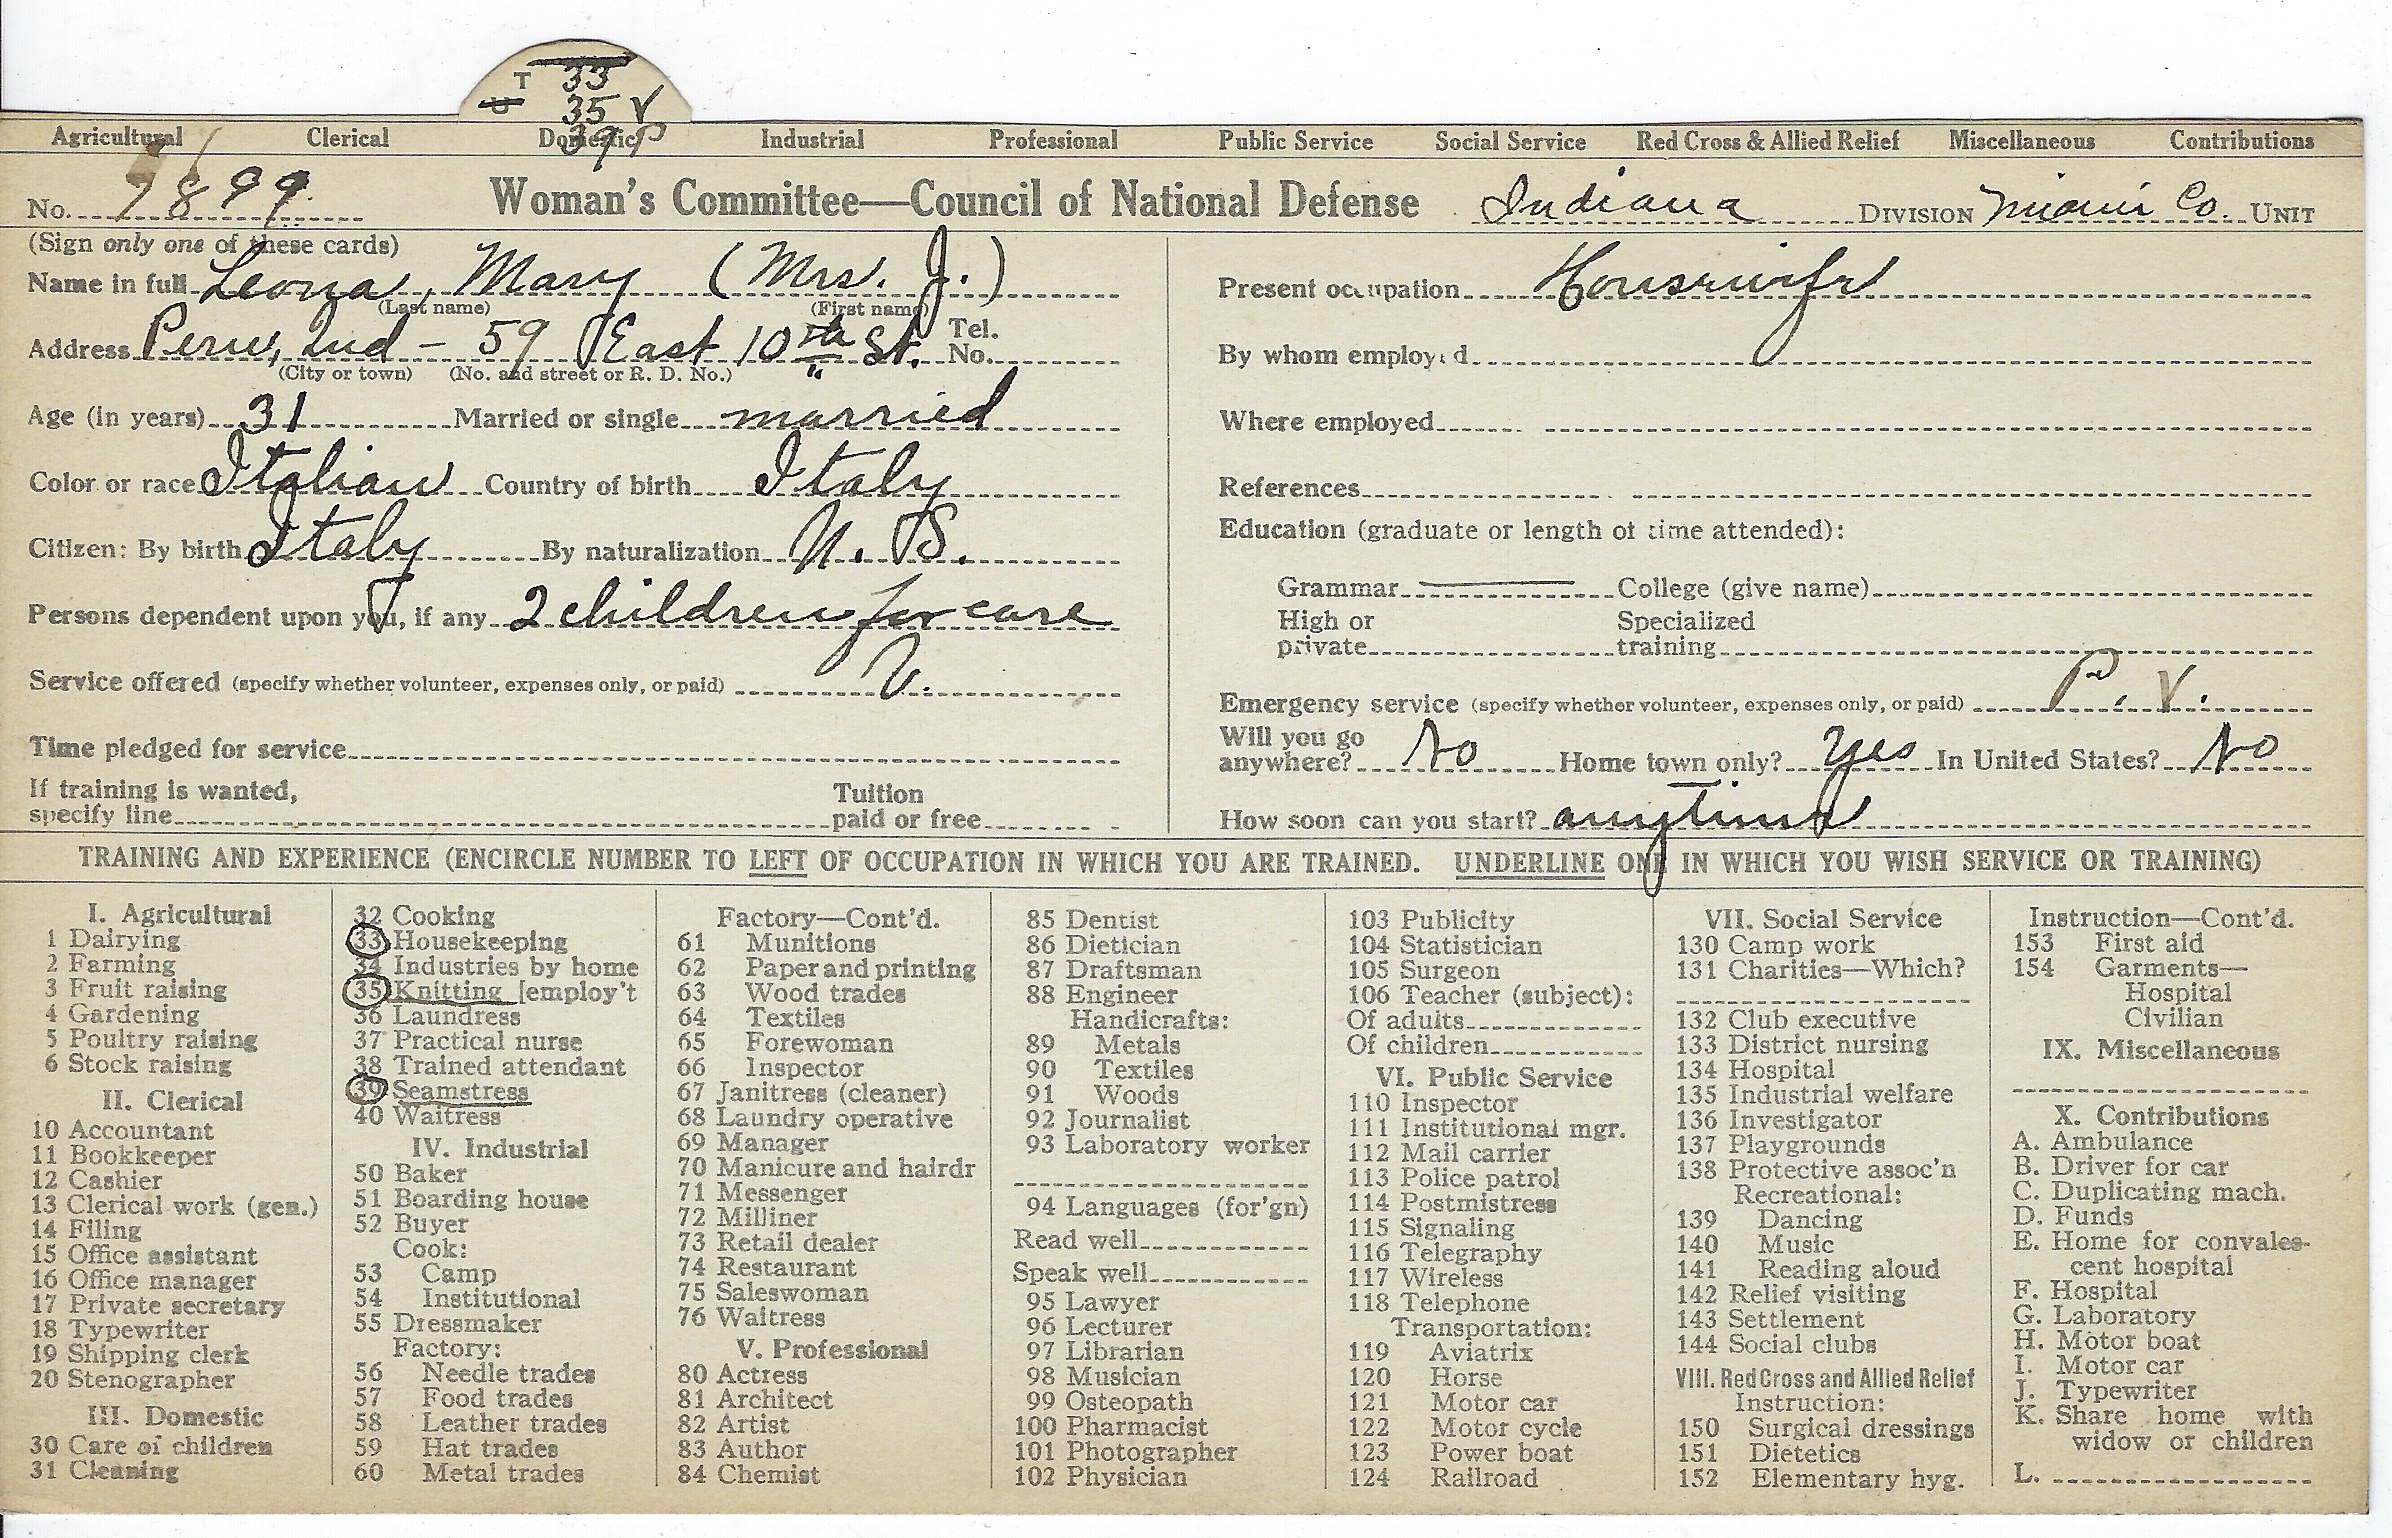 T 33
U 35 V
39 P
Agricultural Clerical Domestic Industrial Professional Public Service Social Service Red Cross & Allied Relief Miscellaneous Contributions
No. 7899 Woman's Committee—Council of National Defense Indiana DIVISION Miami Co. UNIT
(Sign only one of these cards)
Name in full Leona, Mary (Mrs. J.)
(Last name) (First name)
Address Peru, Ind - 59 East 10th St. Tel. No.
(City or town) (No. and street or R. D. No.)
Age (in years) 31 Married or single married
Color or race Italian Country of birth Italy
Citizen: By birth Italy By naturalization U. S.
Persons dependent upon you, if any 2 children for care
Service offered (specify whether volunteer, expenses only, or paid) V.
Time pledged for service
If training is wanted, specify line Tuition paid or free
Present occupation Housewife
By whom employed
Where employed
References
Education (graduate or length of time attended):
Grammar College (give name)
High or private Specialized training
Emergency service (specify whether volunteer, expenses only, or paid) P. V.
Will you go anywhere? No Home town only? Yes In United States? No
How soon can you start? anytime
TRAINING AND EXPERIENCE (ENCIRCLE NUMBER TO LEFT OF OCCUPATION IN WHICH YOU ARE TRAINED. UNDERLINE ONE IN WHICH YOU WISH SERVICE OR TRAINING)
I. Agricultural
1 Dairying
2 Farming
3 Fruit raising
4 Gardening
5 Poultry raising
6 Stock raising
II. Clerical
10 Accountant
11 Bookkeeper
12 Cashier
13 Clerical work (gen.)
14 Filing
15 Office assistant
16 Office manager
17 Private secretary
18 Typewriter
19 Shipping clerk
20 Stenographer
III. Domestic
30 Care of children
31 Cleaning
32 Cooking
33 Housekeeping
34 Industries by home
35 Knitting [employ't
36 Laundress
37 Practical nurse
38 Trained attendant
39 Seamstress
40 Waitress
IV. Industrial
50 Baker
51 Boarding house
52 Buyer
Cook:
53 Camp
54 Institutional
55 Dressmaker
Factory:
56 Needle trades
57 Food trades
58 Leather trades
59 Hat trades
60 Metal trades
Factory—Cont'd.
61 Munitions
62 Paper and printing
63 Wood trades
64 Textiles
65 Forewoman
66 Inspector
67 Janitress (cleaner)
68 Laundry operative
69 Manager
70 Manicure and hairdr
71 Messenger
72 Milliner
73 Retail dealer
74 Restaurant
75 Saleswoman
76 Waitress
V. Professional
80 Actress
81 Architect
82 Artist
83 Author
84 Chemist
85 Dentist
86 Dietician
87 Draftsman
88 Engineer
Handicrafts:
89 Metals
90 Textiles
91 Woods
92 Journalist
93 Laboratory worker
94 Languages (for'gn)
Read well
Speak well
95 Lawyer
96 Lecturer
97 Librarian
98 Musician
99 Osteopath
100 Pharmacist
101 Photographer
102 Physician
103 Publicity
104 Statistician
105 Surgeon
106 Teacher (subject):
Of adults
Of children
VI. Public Service
110 Inspector
111 Institutional mgr.
112 Mail carrier
113 Police patrol
114 Postmistress
115 Signaling
116 Telegraphy
117 Wireless
118 Telephone
Transportation:
119 Aviatrix
120 Horse
121 Motor car
122 Motor cycle
123 Power boat
124 Railroad
VII. Social Service
130 Camp work
131 Charities—Which?
132 Club executive
133 District nursing
134 Hospital
135 Industrial welfare
136 Investigator
137 Playgrounds
138 Protective assoc'n
Recreational:
139 Dancing
140 Music
141 Reading aloud
142 Relief visiting
143 Settlement
144 Social clubs
VIII. Red Cross and Allied Relief
Instruction:
150 Surgical dressings
151 Dietetics
152 Elementary hyg.
Instruction—Cont'd.
153 First aid
154 Garments—
Hospital
Civilian
IX. Miscellaneous
X. Contributions
A. Ambulance
B. Driver for car
C. Duplicating mach.
D. Funds
E. Home for convales-
cent hospital
F. Hospital
G. Laboratory
H. Motor boat
I. Motor car
J. Typewriter
K. Share home with
widow or children
L.